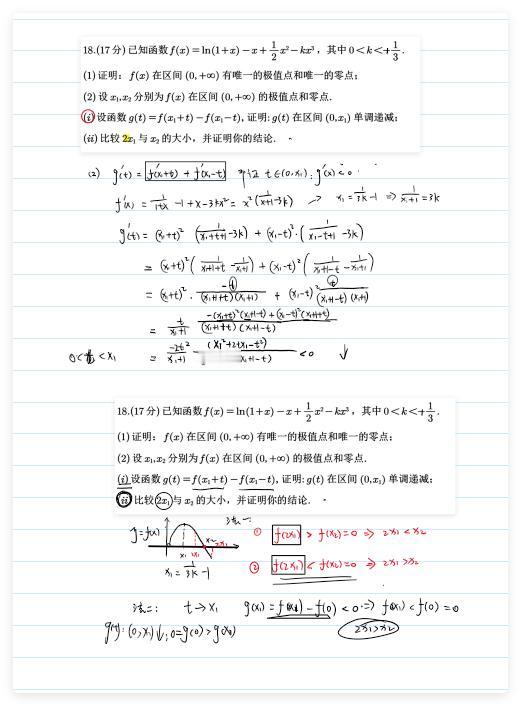 18.(17分) 已知函数 f(x)=ln(1+x)-x+\frac{1}{2}x²-kx³, 其中 0<k<+\frac{1}{3}.
(1) 证明: f(x) 在区间 (0,+∞) 有唯一的极值点和唯一的零点;
(2) 设 x₁,x₂ 分别为 f(x) 在区间 (0,+∞) 的极值点和零点.
(i) 设函数 g(t)=f(x₁+t)-f(x₁-t), 证明: g(t) 在区间 (0,x₁) 单调递减;
(ii) 比较 2x₁ 与 x₂ 的大小, 并证明你的结论.
(2) g'(t) = f'(x₁+t) + f'(x₁-t) t∈(0,x₁), g'(x)<0
f'(x) = \frac{1}{1+x} -1+x-3kx² = x²(\frac{1}{x+1}-3k) → x₁=\frac{1}{3k}-1 ⇒ \frac{1}{x₁+1}=3k
g'(t) = (x₁+t)² (\frac{1}{x₁+t+1}-3k) + (x₁-t)²·(\frac{1}{x₁-t+1}-3k)
= (x₁+t)² (\frac{1}{x₁+1+t}-\frac{1}{x₁+1}) + (x₁-t)² (\frac{1}{x₁+1-t}-\frac{1}{x₁+1})
= (x₁+t)² · \frac{-t}{(x₁+1+t)(x₁+1)} + (x₁-t)² \frac{t}{(x₁+1-t)(x₁+1)}
= \frac{t}{x₁+1} \frac{-(x₁+t)²(x₁+1-t)+(x₁-t)²(x₁+1+t)}{(x₁+1+t)(x₁+1-t)}
0<t<x₁ = \frac{-2t²}{x₁+1} \frac{(x₁²+2x₁-t²)}{x₁+1-t)} <0 ↓
18.(17分) 已知函数 f(x)=ln(1+x)-x+\frac{1}{2}x²-kx³, 其中 0<k<+\frac{1}{3}.
(1) 证明: f(x) 在区间 (0,+∞) 有唯一的极值点和唯一的零点;
(2) 设 x₁,x₂ 分别为 f(x) 在区间 (0,+∞) 的极值点和零点.
(i) 设函数 g(t)=f(x₁+t)-f(x₁-t), 证明: g(t) 在区间 (0,x₁) 单调递减;
(ii) 比较 2x₁ 与 x₂ 的大小, 并证明你的结论.
y=f(x) x₁ 2x₁ x₂ 2x₁
① f(2x₁) > f(x₂)=0 ⇒ 2x₁<x₂
x₁=\frac{1}{3k}-1
② f(2x₁) < f(x₂)=0 ⇒ 2x₁>x₂
法二: t→x₁ g(x₁)=f(2x₁)-f(0)<0 ⇒ f(2x₁)<f(0)=0
g(t): (0,x₁)↓, 0=g(0)>g(x₁) 2x₁>x₂